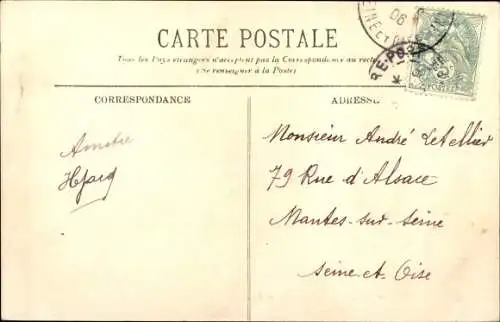 CARTE POSTALE
Tous les Pays étrangers n'acceptent pas la Correspondance au recto
(Se renseigner à la Poste)
CORRESPONDANCE
ADRESSE
Monsieur André Letellier
79 Rue d'Alsace
Mantes-sur-Seine
Seine-et-Oise
06
SEINE ET